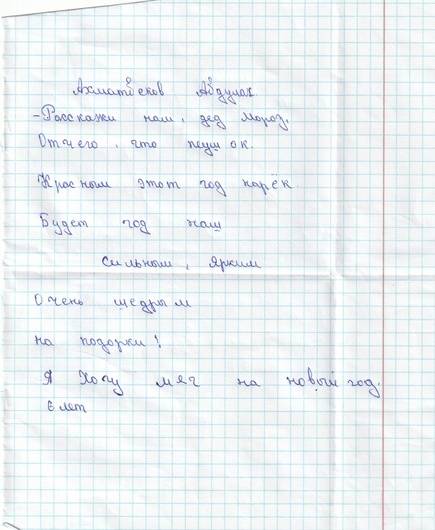 Ахматбеков Абдулах
-Расскажи нам, дед мороз.
Отчего, что пеушок.
Красным этот год нарёк
Будет год наш
сильным, ярким
Очень щедрым
на подорки!
Я Хочу мяч на новый год.
6 лет